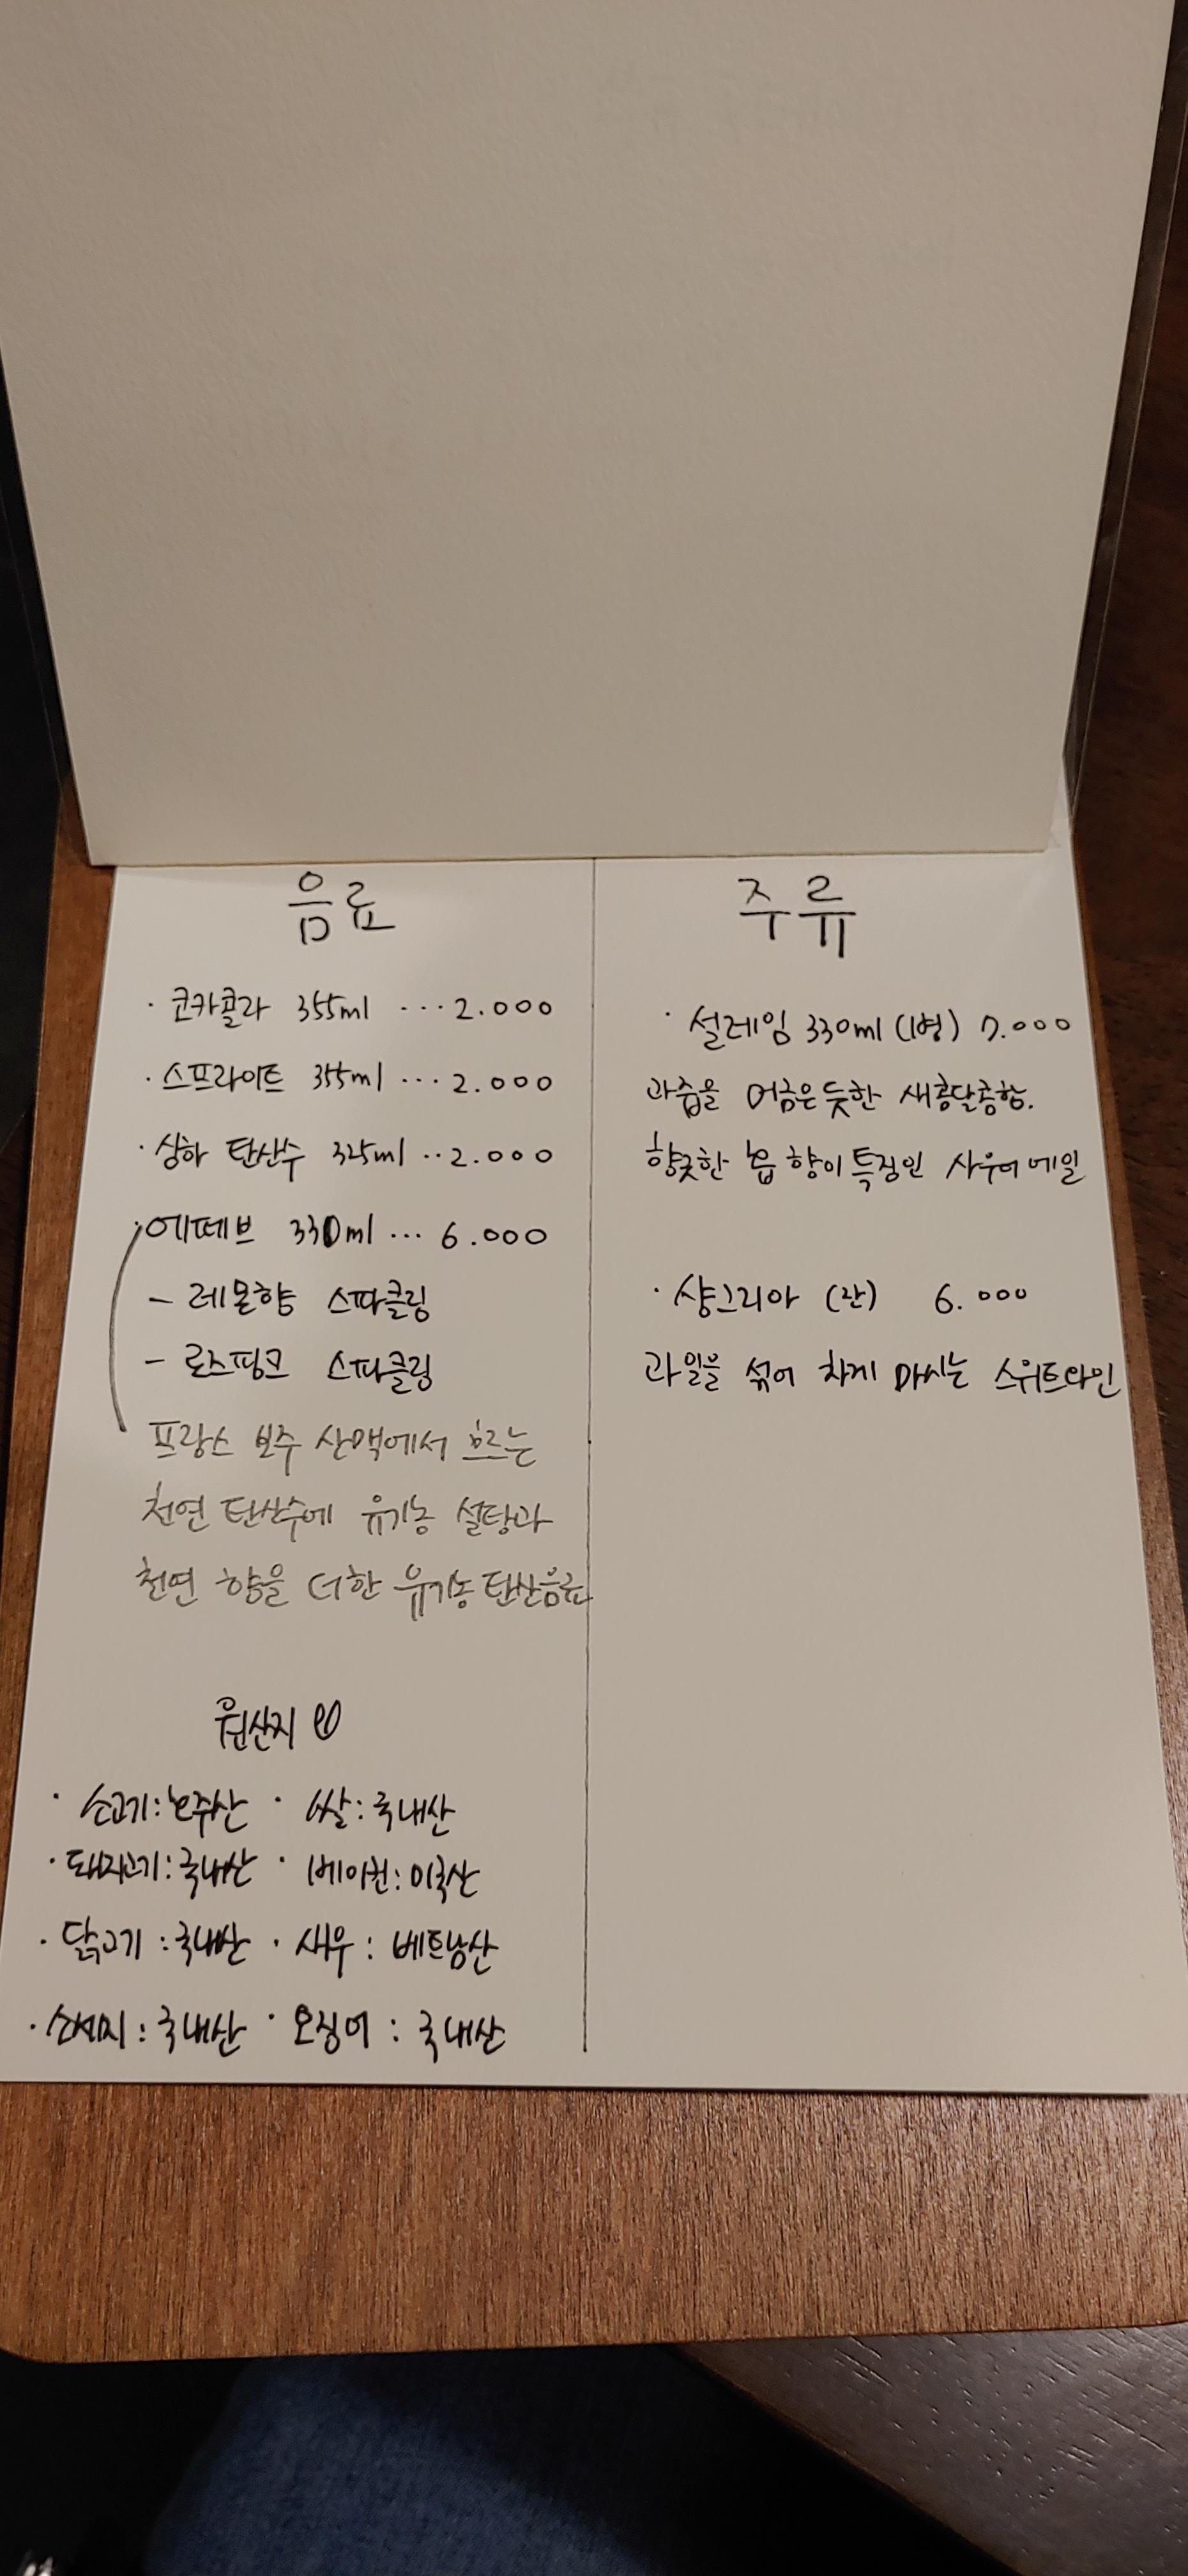 음료
· 코카콜라 355ml ··· 2.000
· 스프라이트 355ml ··· 2.000
· 상하 탄산수 325ml ·· 2.000
· 에떼브 330ml ··· 6.000
- 레몬향 스파클링
- 로즈핑크 스파클링
프랑스 보주 산맥에서 흐르는
천연 탄산수에 유기농 설탕과
천연 향을 더한 유기농 탄산음료
원산지
· 소고기 : 호주산 · 쌀 : 국내산
· 돼지고기 : 국내산 · 베이컨 : 미국산
· 닭고기 : 국내산 · 새우 : 베트남산
· 소세지 : 국내산 · 오징어 : 국내산
주류
· 설레임 330ml (1병) 7.000
과즙을 머금은듯한 새콤달콤함.
향긋한 홉 향이 특징인 사우어 에일
· 샹그리아 (잔) 6.000
과일을 섞어 차게 마시는 스위트와인